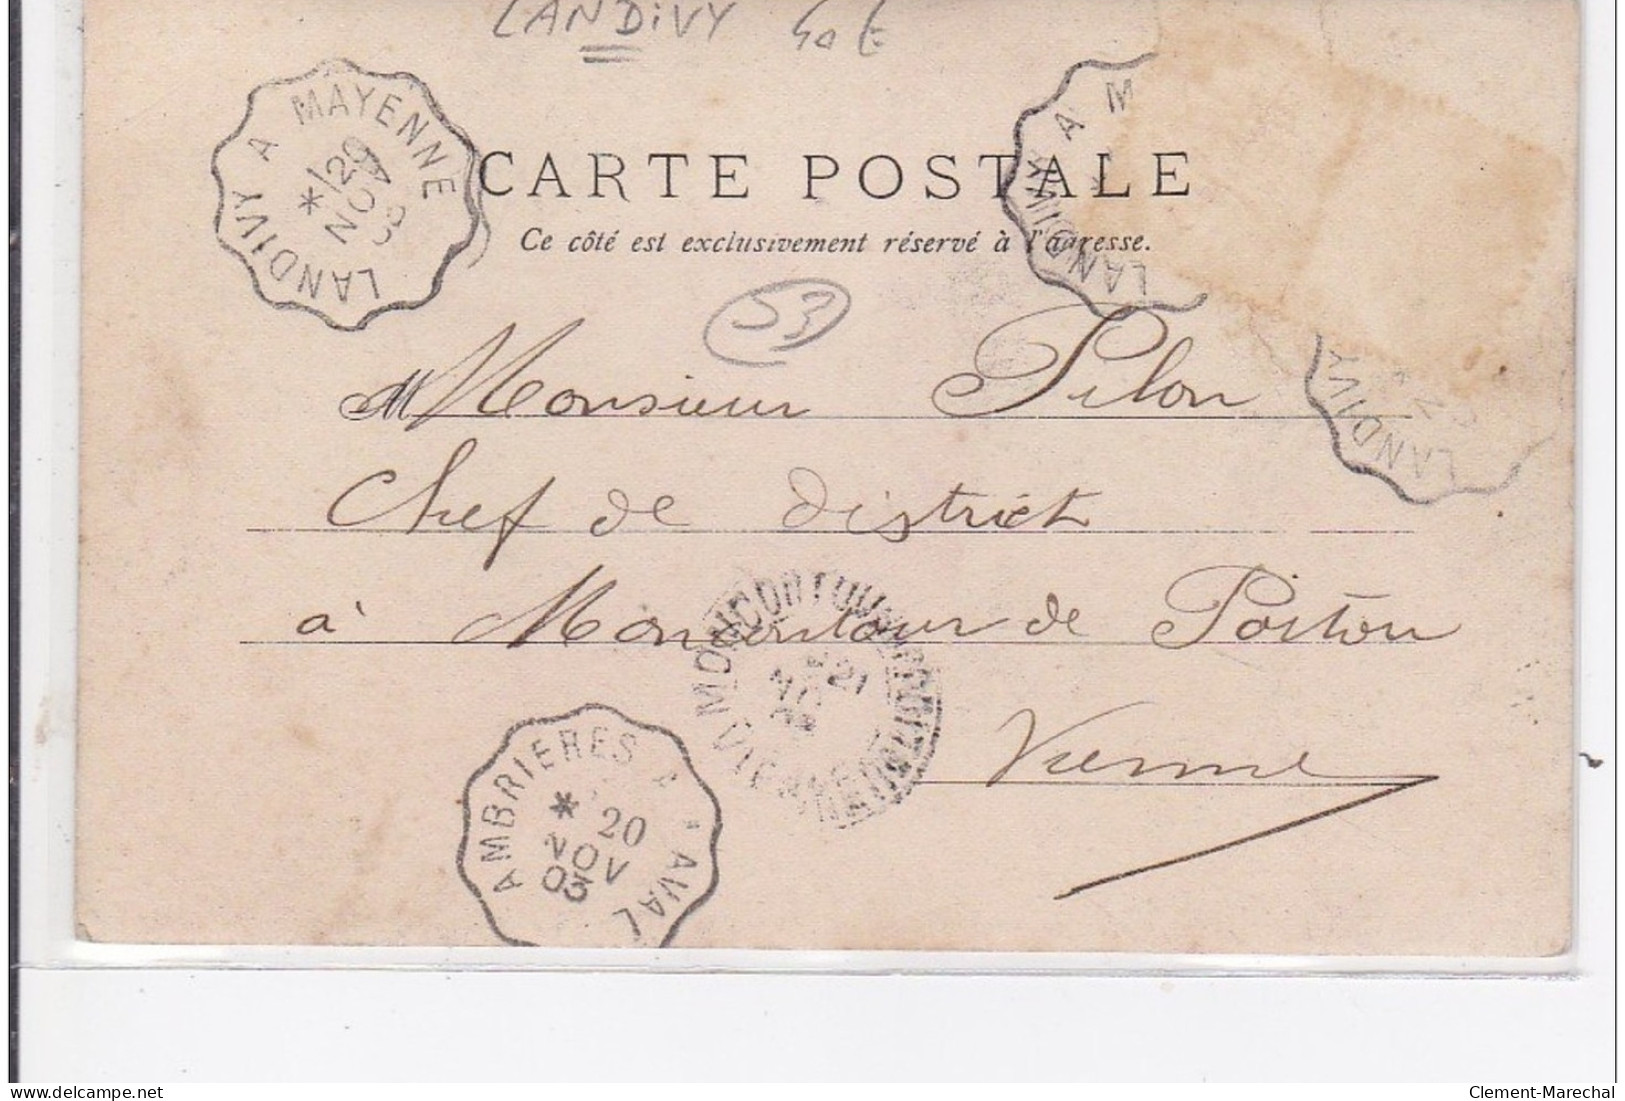 LANDIVY 40 E
LANDIVY A MAYENNE
* 20
NOV
03
LANDIVY A M
CARTE POSTALE
Ce côté est exclusivement réservé à l'adresse.
53
Monsieur Pilon
LANDIVY
Chef de district
à Moncontour de Poitou
Vienne
MONCONTOUR
21
VIENNE
AMBRIERES A LAVAL
* 20
NOV
03
Clement-Marechal